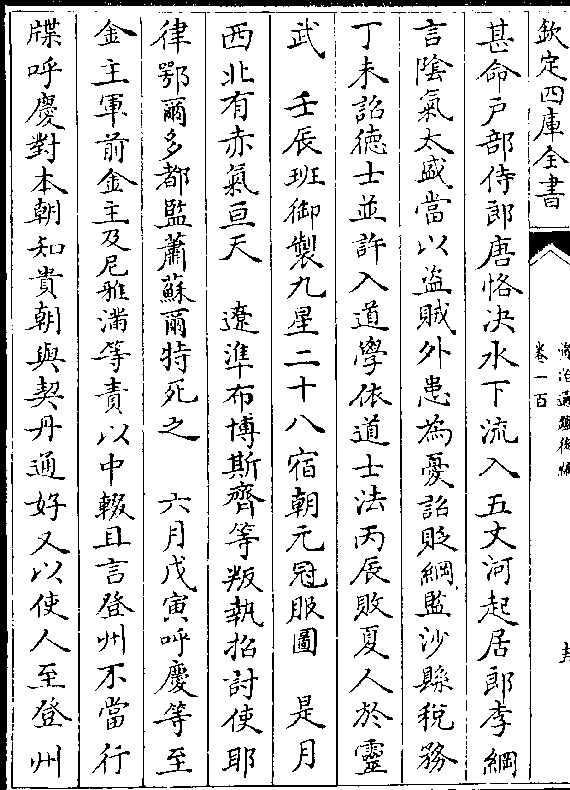 欽定四庫全書
資治通鑑後編
卷一百
甚命戶部侍郎唐恪決水下流入五丈河起居郎李綱
言陰氣太盛當以盜賊外患為憂詔貶綱監沙縣稅務
丁未詔德士並許入道學依道士法丙辰敗夏人於靈
武 壬辰班御製九星二十八宿朝元冠服圖 是月
西北有赤氣亘天 遼準布博斯齊等叛執招討使耶
律鄂爾多都監蕭蘇爾特死之 六月戊寅呼慶等至
金主軍前金主及尼雅滿等責以中輟且言登州不當行
牒呼慶對本朝知貴朝與契丹通好又以使人至登州